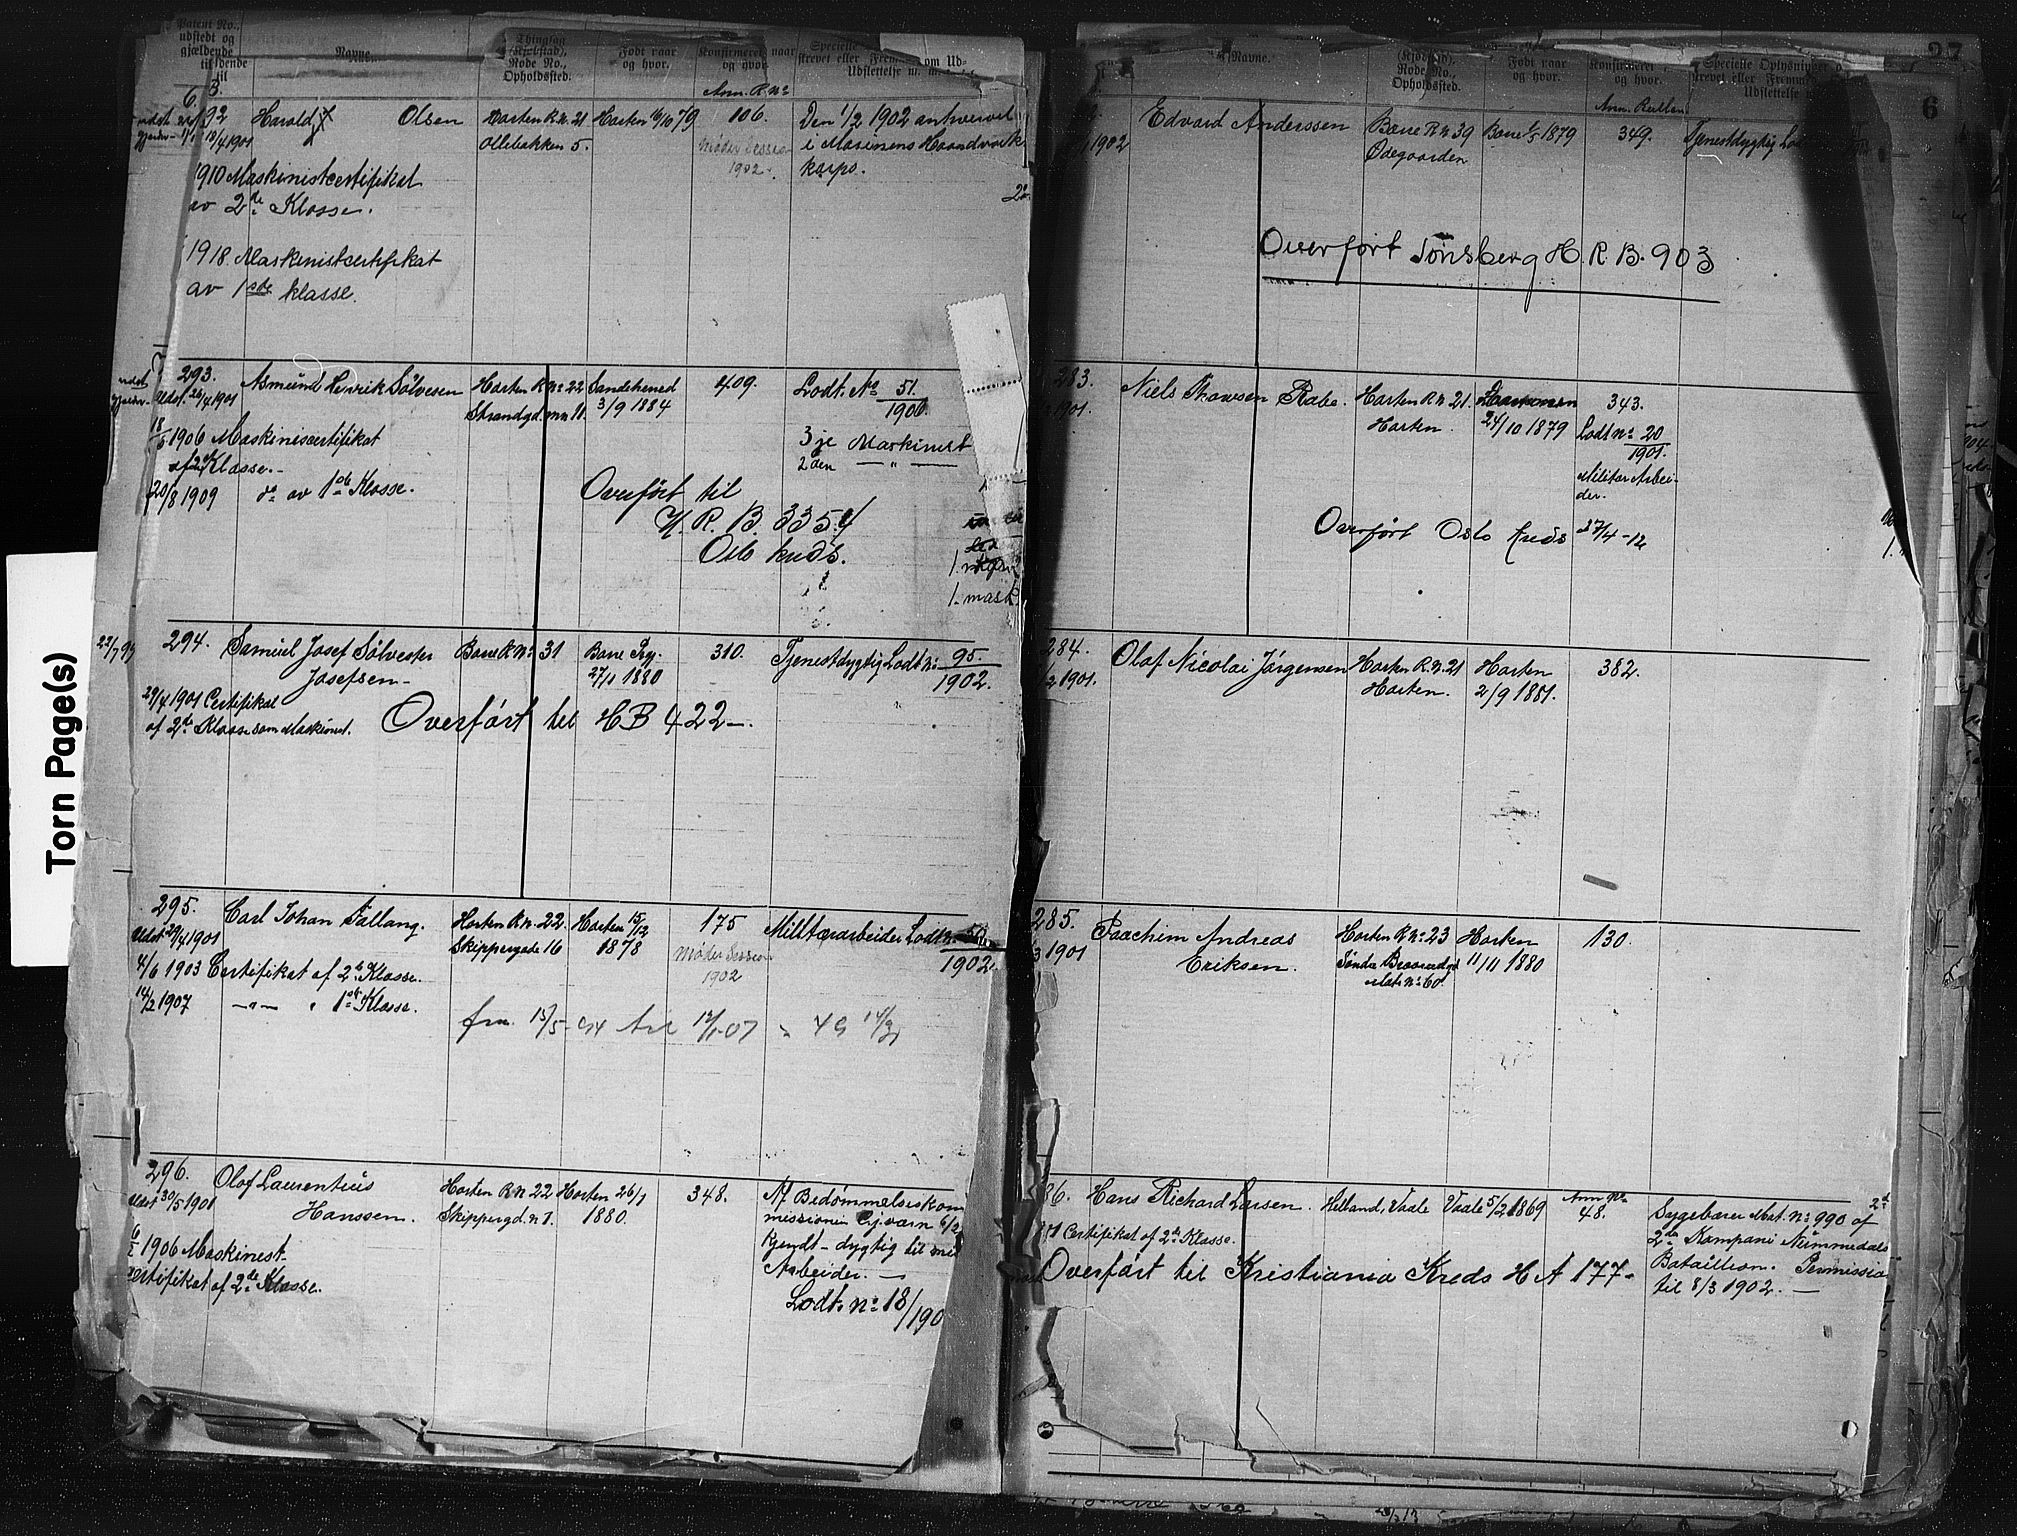 Torn Page(s)
Patent No.,
udstedt og
gjældende
til
Navne.
Thinglag
(Kjøbstad),
Rode No.,
Opholdsted.
Født naar
og hvor.
Konfirmeret naar
og hvor.
Ann. R. No
6. B.
292
Harald Olsen
Horten R. N. 21
Ollebakken 5.
Horten 16/10 79
106.
Møder Session
1902.
Den 1/2 1902 antvervet
i Marinens Haandværk
korps.
18/4 1901
1910 Maskinistcertifikat
av 2de Klasse.
1918 Maskinistcertifikat
av 1ste klasse.
293.
Udst. 26/4 1901
Asmund Henrik Sølvesen
Horten R. No 22
Strandgd. mn 11.
Sandehered
3/9 1884
409.
Lodt. No 51.
1906.
3je Maskinist
2den — " —
1906 Maskinistcertifikat
af 2de Klasse.-
20/8 1909 do av 1ste Klasse.
Overført til
H. R. B. 335.4
Oslo kreds.
1. mask.
23/7 99
294.
Samuel Josef Sølvester
Josefsen-
Borre R No 31
Borre Prg.
27/1 1880
310.
Tjenestdygtig Lodt No 95.
1902.
29/4 1901 Certifikat
af 2de Klasse som Maskinist.
Overført til HB 422-.
295.
Udst 29/4 1901
Carl Johan Fallang.
Horten R. N. 22.
Skippergade 16
Horten 15/12
1878
175
Møder Session
1902
Militærarbeider Lodt N. 50
1902.
4/6 1903 Certifikat af 2de Klasse.
14/2 1907 — " — " 1ste Klasse.
fra 15/5-04 til 12/1-07
296.
Udst 30/5 1901
Olaf Laurentius
Hanssen.
Horten R. N 22
Skippergd. n 7.
Horten 26/1
1880.
348.
Af Bedømmelseskom
missionen Gjværn 6/2
kjendt- dygtig til mil
Arbeider. —
Lodt. No 18/190
1906 Maskinist-
certifikat af 2de Klasse.
27
6
Navne.
(Kjøbstad),
Rode No.,
Opholdsted.
Født naar
og hvor.
Konfirmeret
og hvor.
Specielle Oplysninger
Udslettelse
Ann. Rullen
1902
Edvard Anderssen
Borre R N 39
Ødegaarden
Borre 1879
349.
Tjenestdygtig
Overført Tønsberg H. R. B. 903
283.
1901.
Niels Thowsen Rabe.
Horten R. N 21.
Horten.
24/10 1879
343.
Lodt No 20
1901.
Militær Arbei-
der.
Overført Oslo kreds 27/4-12
284.
1901.
Olaf Nicolai Jørgensen
Horten R. N. 21
Horten.
Horten
2/9 1881.
382.
285.
1901
Joachim Andreas
Eriksen.
Horten R No 23
Mat. No 60.
Horten
11/11 1880
130.
86.
Hans Richard Larsen.
Helland, Vaale
Vaale 5/2 1869
Ann. No
48.
Sygebærer Mat. No 990 af
2de Kompani Nummedals
Batallion. Permission
til 8/3 1902. —
Certifikat af 2de Klasse.
Overført til Kristiania Kreds H A 177-